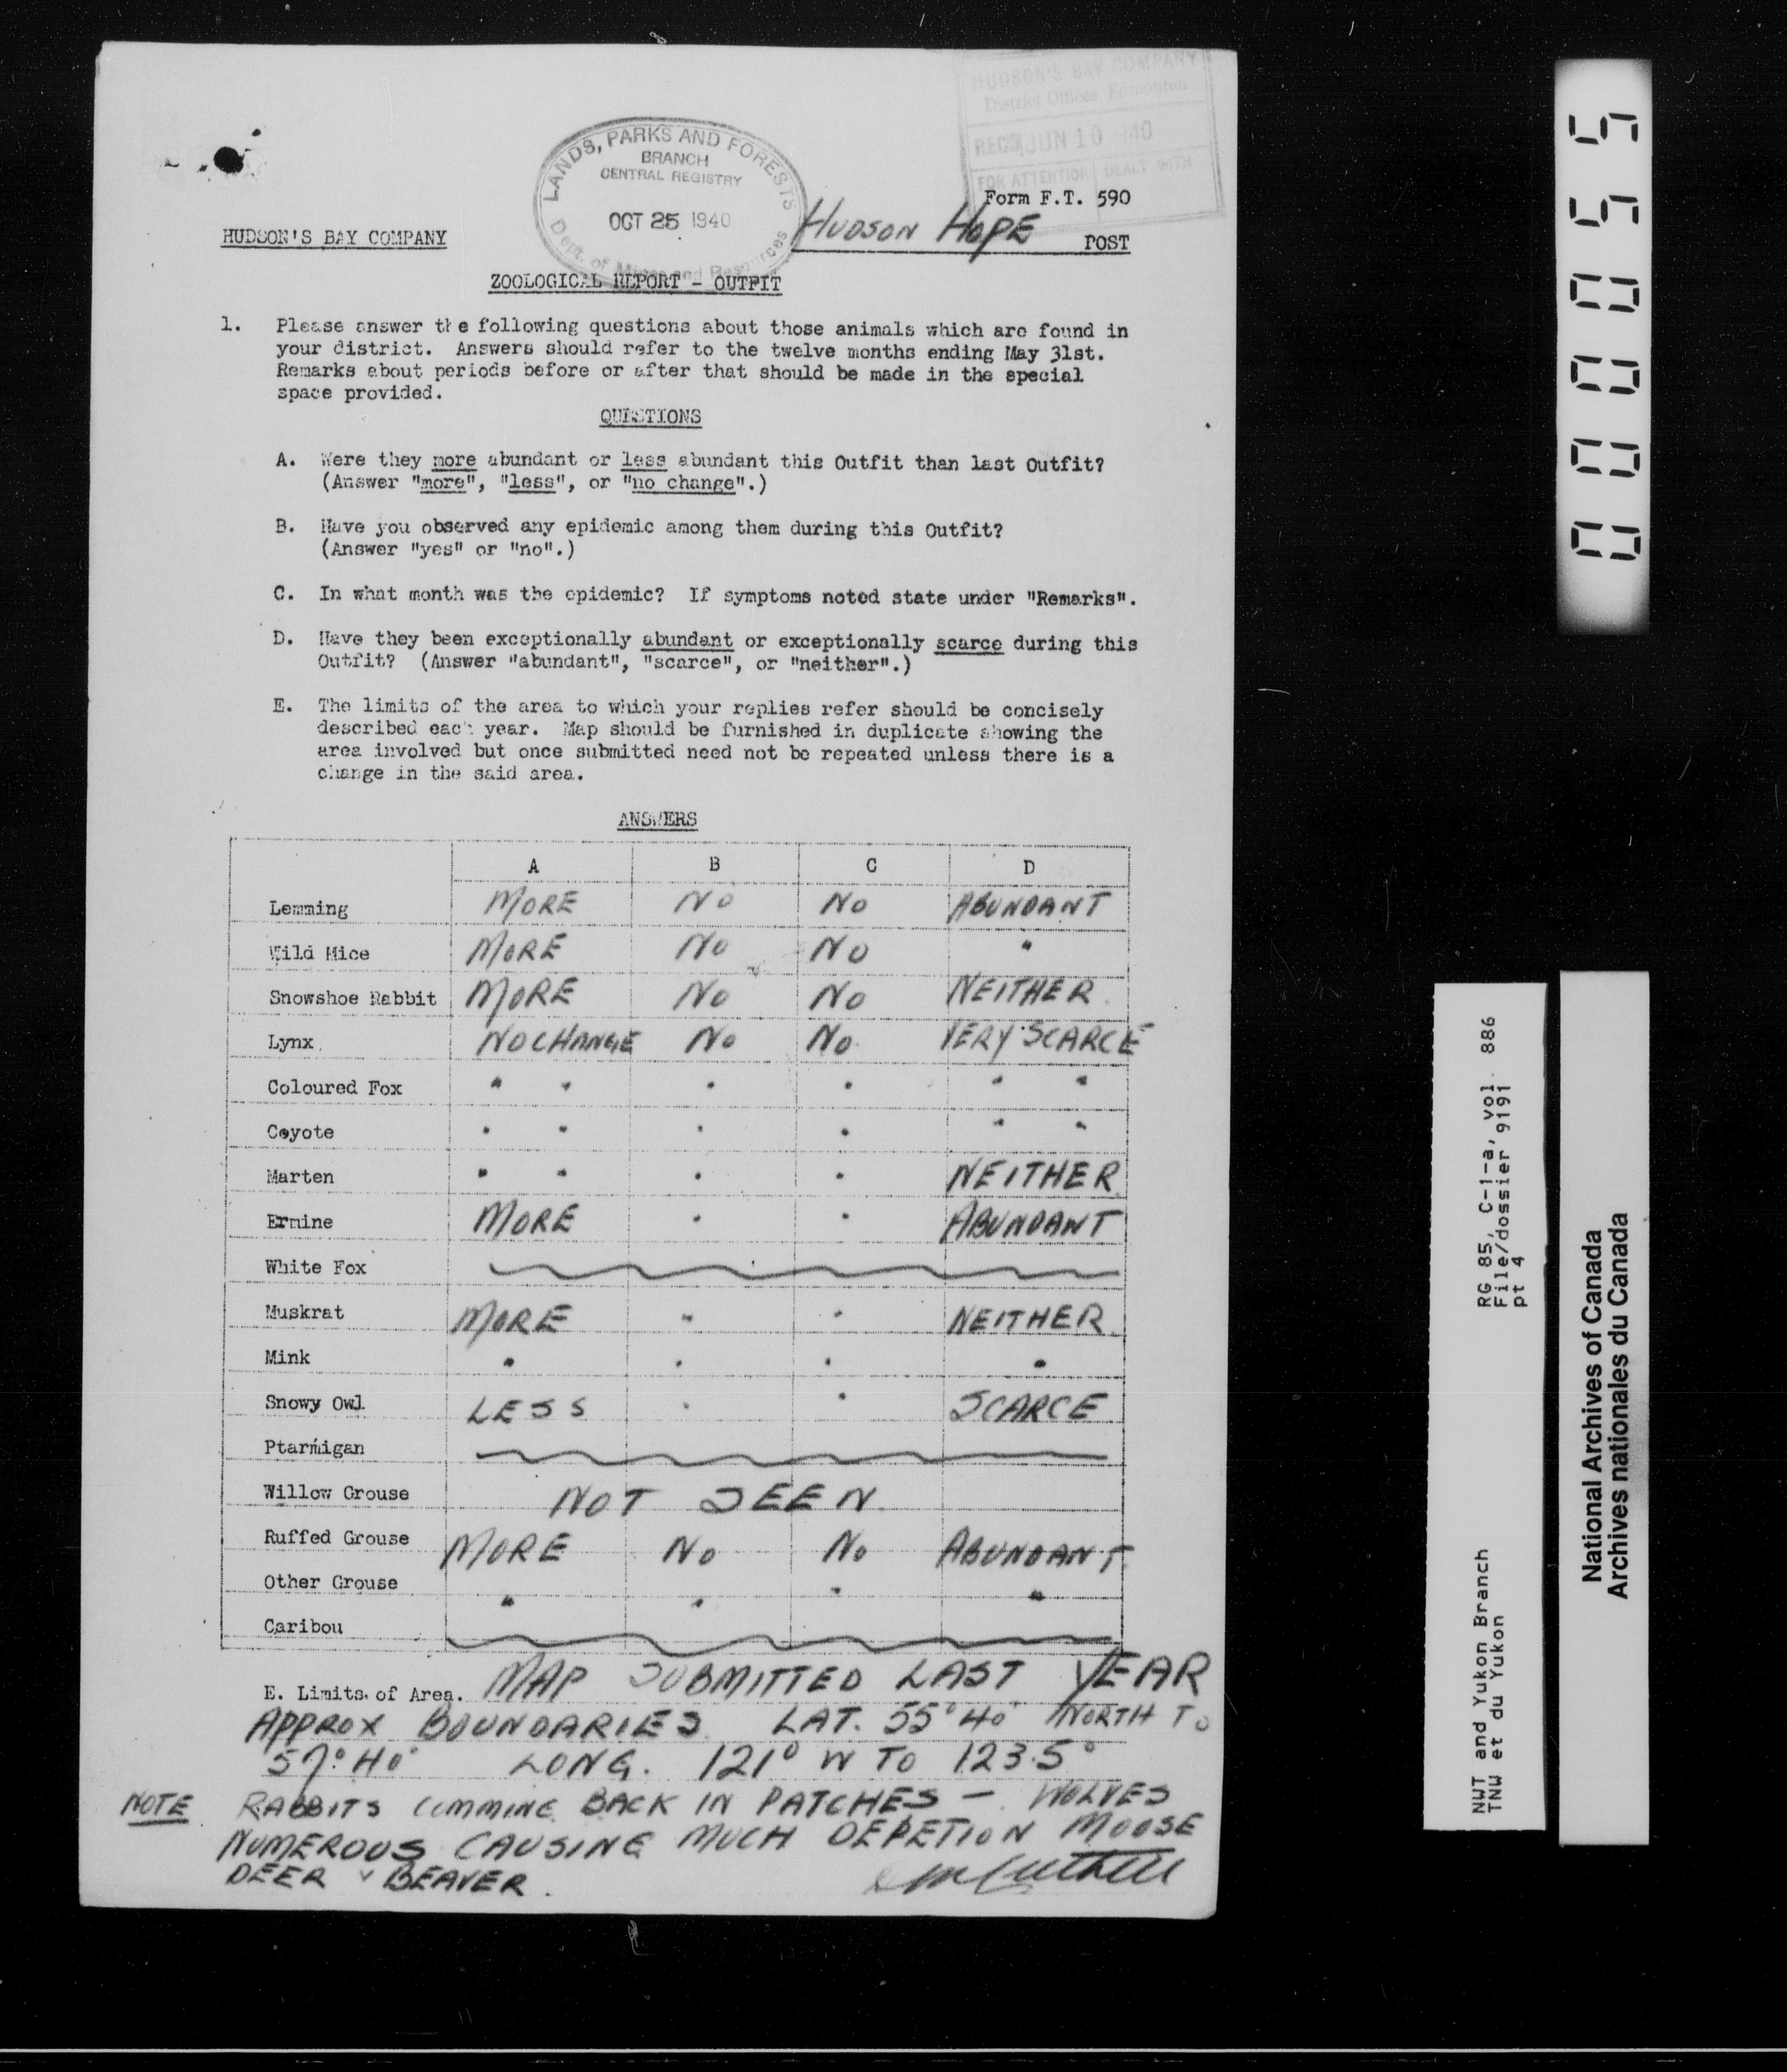 HUDSON'S BAY COMPANY
District Offices Edmonton
REC'D JUN 10 1940
FOR ATTENTION DEALT WITH
LANDS, PARKS AND FORESTS
BRANCH
CENTRAL REGISTRY
OCT 25 1940
Dept. of Mines and Resources
Form F.T. 590
HUDSON'S BAY COMPANY HUDSON HOPE POST
ZOOLOGICAL REPORT - OUTFIT
1. Please answer the following questions about those animals which are found in
your district. Answers should refer to the twelve months ending May 31st.
Remarks about periods before or after that should be made in the special
space provided.
QUESTIONS
A. Were they more abundant or less abundant this Outfit than last Outfit?
(Answer "more", "less", or "no change".)
B. Have you observed any epidemic among them during this Outfit?
(Answer "yes" or "no".)
C. In what month was the epidemic? If symptoms noted state under "Remarks".
D. Have they been exceptionally abundant or exceptionally scarce during this
Outfit? (Answer "abundant", "scarce", or "neither".)
E. The limits of the area to which your replies refer should be concisely
described each year. Map should be furnished in duplicate showing the
area involved but once submitted need not be repeated unless there is a
change in the said area.
ANSWERS
A B C D
Lemming MORE NO NO ABUNDANT
Wild Mice MORE NO NO "
Snowshoe Rabbit MORE NO NO NEITHER
Lynx NO CHANGE NO NO VERY SCARCE
Coloured Fox " " " " " "
Coyote " " " " " "
Marten " " " " NEITHER
Ermine MORE " " ABUNDANT
White Fox
Muskrat MORE " " NEITHER
Mink " " " "
Snowy Owl LESS " " SCARCE
Ptarmigan
Willow Grouse NOT SEEN
Ruffed Grouse MORE NO NO ABUNDANT
Other Grouse " " " "
Caribou
E. Limits of Area. MAP SUBMITTED LAST YEAR
APPROX BOUNDARIES LAT. 55°40' NORTH TO
57°40' LONG. 121° W TO 123.5°
NOTE RABBITS CUMMING BACK IN PATCHES - WOLVES
NUMEROUS CAUSING MUCH DEPETION MOOSE
DEER & BEAVER.
00055
RG 85, C-1-a, vol. 886
File/dossier 9191
pt 4
NWT and Yukon Branch
TNW et du Yukon
National Archives of Canada
Archives nationales du Canada